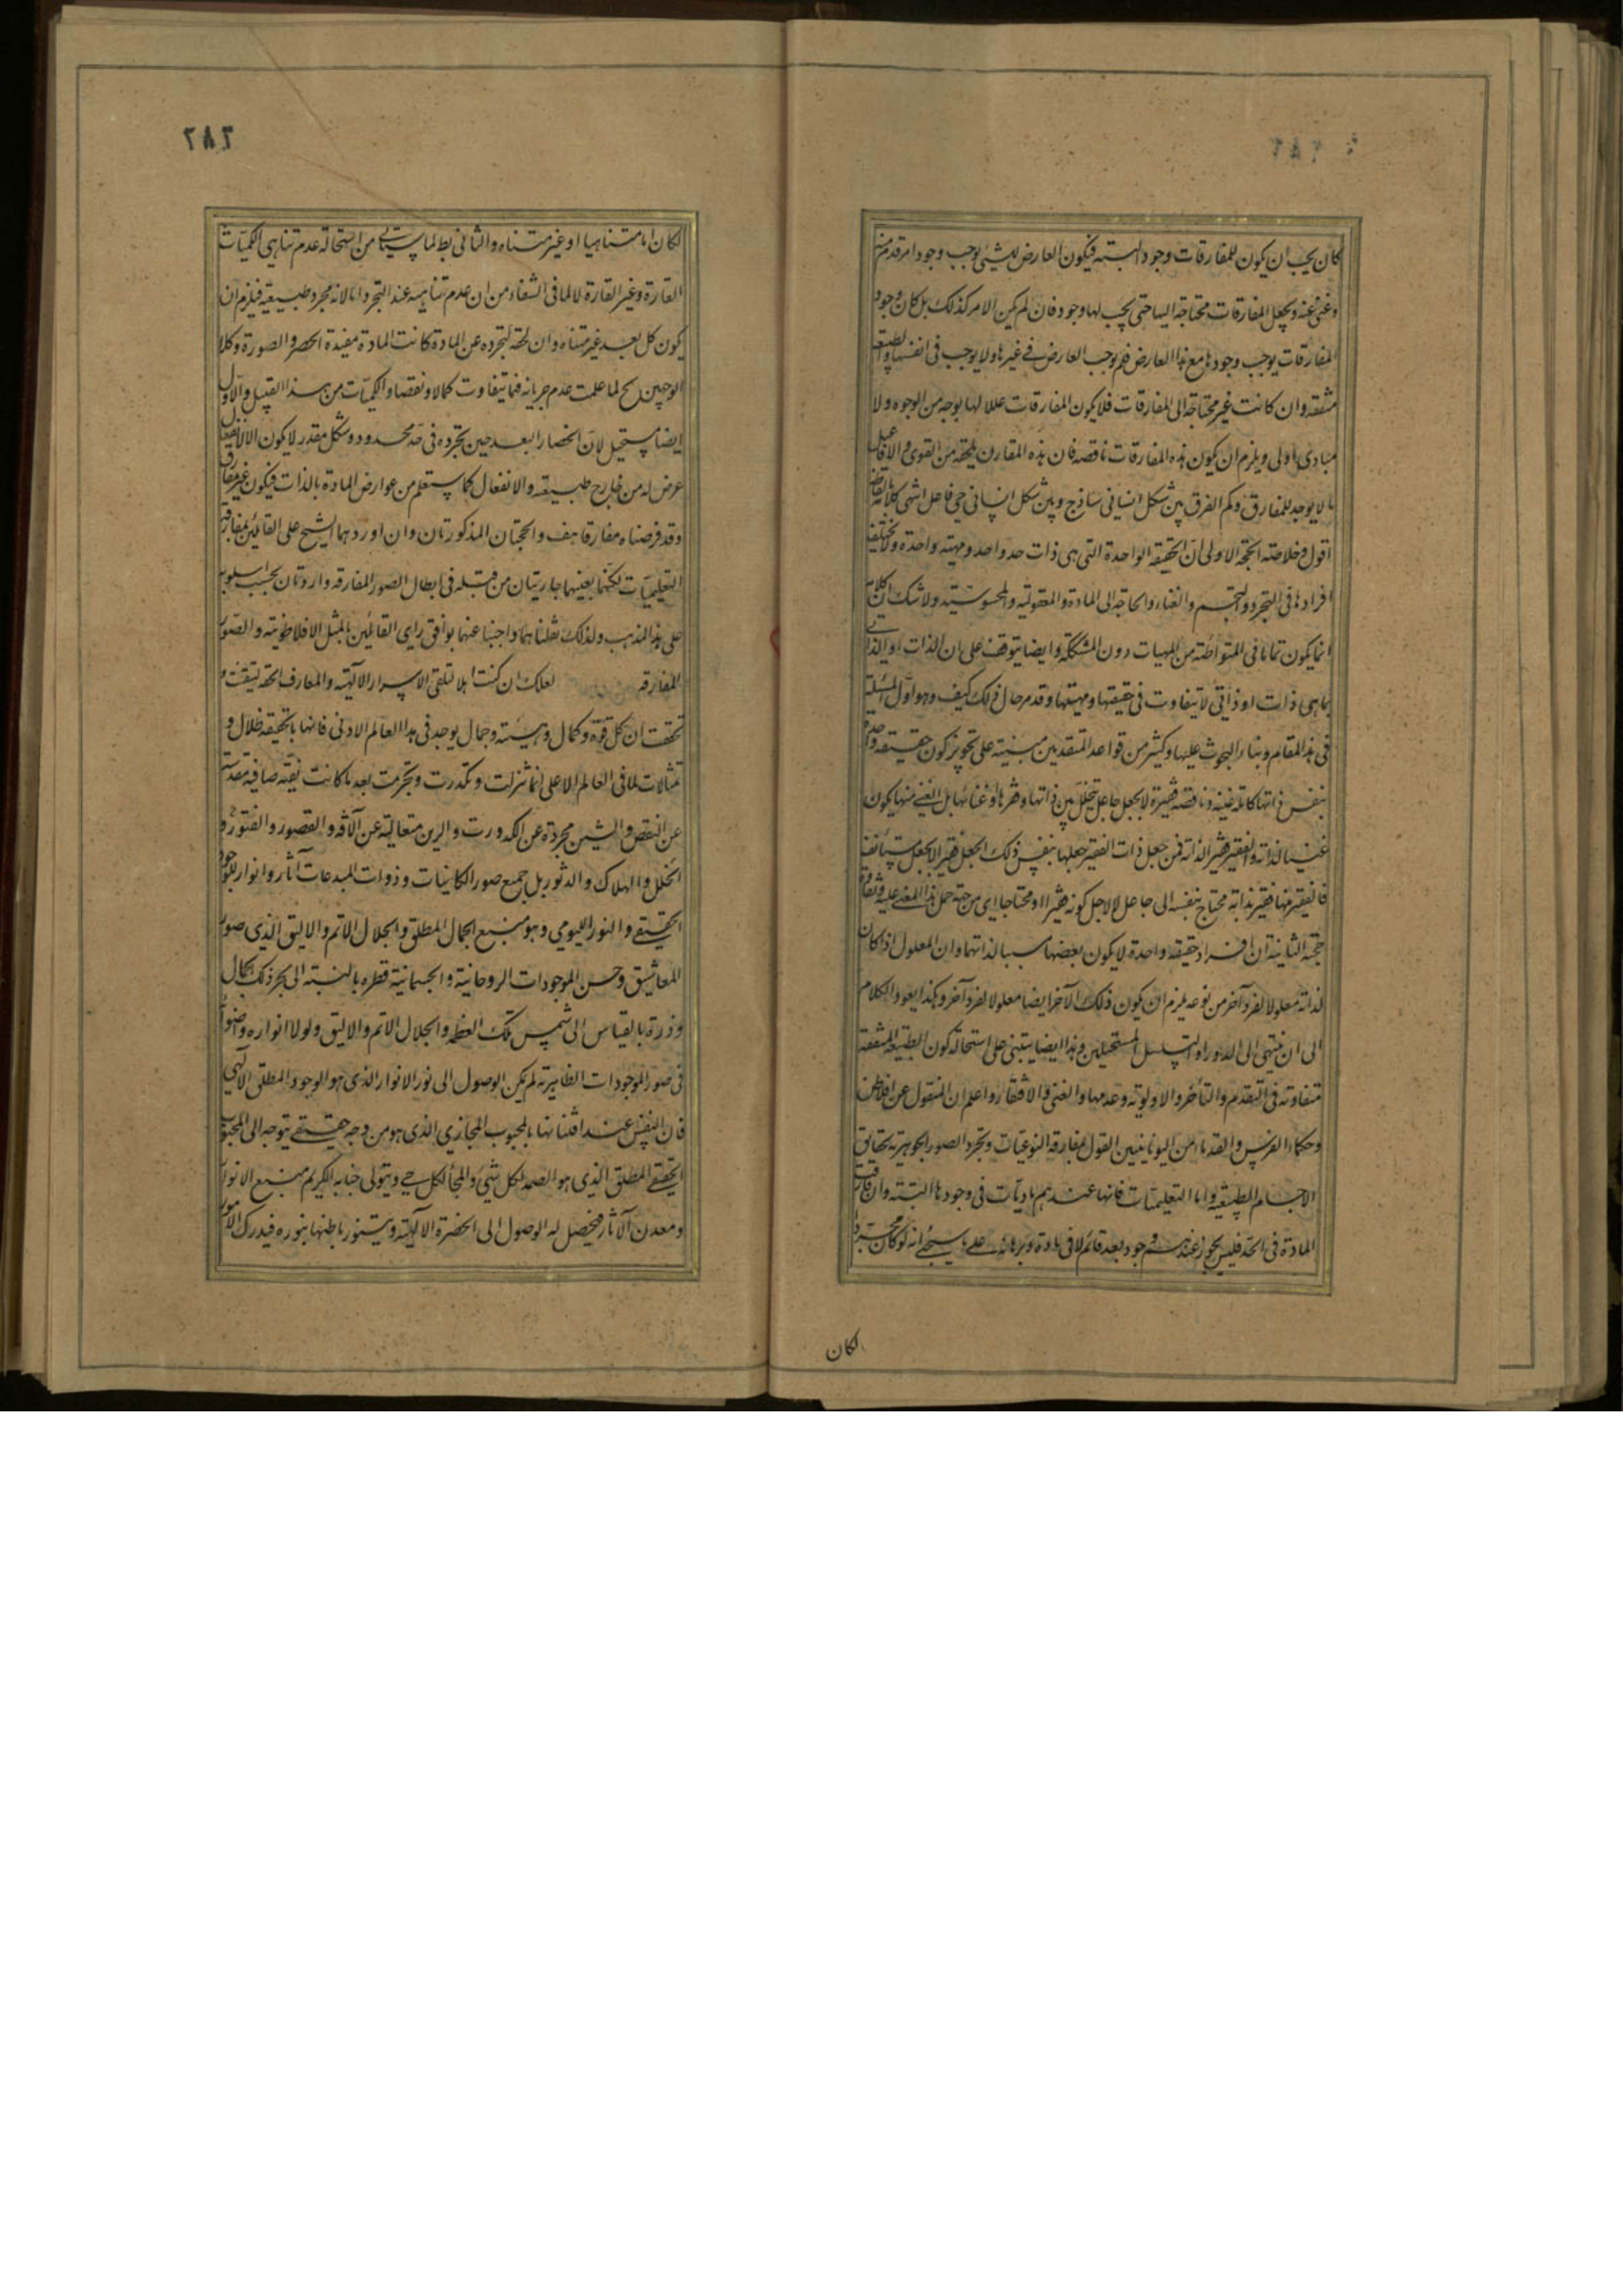 كان يجب ان يكون للمفارقات وجود البته فيكون العارض للشيئ يوجب وجود امر قدم منه
وغنى عنه ويجعل المفارقات محتاجة اليها حتى يجب لها وجود فان لم يكن الامر كذلك بل كان وجود
المفارقات يوجب وجودها مع هذا العارض فلم يوجب العارض في غيرها ولا يوجب في انفسها والطبيعة
متفقه وان كانت غير محتاجة الى المفارقات فلا يكون المفارقات عللا لها بوجه من الوجوه ولا
مبادى اولى ويلزم ان يكون هذه المفارقات ناقصه فان هذه المقارن يلحقه من القوى والافاعيل
ما لا يوجد للمفارق وكم الفرق بين شكل انسانى ساذج وبين شكل انسانى حى فاعل انتهى كلامه بالفاظه
اقول وخلاصته الحجة الاولى ان الحقيقه الواحدة التى هى ذات حد واحد ومهية واحدة ولا يختلف
افرادها فى التجرد والتجسم والغناء والحاجة الى المادة والمعقولية والمحسوسية ولا شك ان كلامه
انما يكون تماما فى المتواطئة من المهيات دون المشككة وايضا يتوقف على ان الذات او الذاتى
بما هى ذات او ذاتى لا يتفاوت فى حقيقتها ومهيتها وقد مر حال ذلك كيف وهو اول المسئلة
فى هذا المقام وبناء البحوث عليها وكثير من قواعد المتقدمين مبنية على تجويز كون حقيقه واحدة
بنفس ذاتها كامله غنيه وناقصه فقيرة لا بجعل جاعل يتخلل بين ذاتها وفقرها او غنائها بل الغنى منها يكون
غنيا لذاته والفقير فقيرا لذاته فمن جعل ذات الفقير جعلها بنفس ذلك الجعل فقيرا لا بجعل مستأنف
فالفقير منها فقير بذاته محتاج بنفسه الى جاعل لا لاجل كونه فقيرا او محتاجا اى من جهة حمل هذا المعنى عليه وخلاصة
حجته الثانية ان افراد حقيقه واحدة لا يكون بعضها سببا لذاتها وان المعلول اذا كان
لذاته معلولا لفرد آخر من نوعه يلزم ان يكون ذلك الآخر ايضا معلولا لفرد آخر وهكذا يعود الكلام
الى ان ينتهى الى الدور او التسلسل المستحيلين وهذا ايضا يبتنى على استحالة كون الطبيعه المتفقه
متفاوته فى التقدم والتأخر والاولويه وعدمها والغنى والافتقار واعلم ان المنقول عن افلاطن
وحكماء الفرس والقدماء من اليونانيين القول بمفارقه النوعيات وتجرد الصور الجوهريه لحقايق
الاجسام الطبيعيه واما التعليميات فانها عندهم ماديات فى وجودها البتته وان فارقت
المادة فى الحد فليس يجوز عندهم وجود بعد قائم لا فى مادة وبرهانه على ما سيجئ انه لو كان مجردا
لكان
٢٨٣
لكان اما متناهيا او غير متناه والثانى بط لما سيأتى من استحالة عدم تناهى الكميات
القارة وغير القارة لا لما فى الشفاء من ان عدم تناهيه عند التجرد اما لانه مجرد طبيعته فيلزم ان
يكون كل بعد غير متناه وان لحقه لتجرده عن المادة كانت المادة مفيدة الحصر والصورة وكلا
الوجهين مح لما علمت عدم جريانه فيما يتفاوت كمالا ونقصا والكميات من هذا القبيل والاول
ايضا مستحيل لان انحصار البعد حين تجرده فى حد محدود وشكل مقدر لا يكون الا لانفعال
عرض له من خارج طبيعته والانفعال كما ستعلم من عوارض المادة بالذات فيكون غير مفارق
وقد فرضناه مفارقا هف والحجتان المذكورتان وان اوردهما الشيخ على القايلين بمفارقة
التعليميات لكنهما بعينهما جاريتان من قبله فى ابطال الصور المفارقه واردتان بحسب اسلوبه
على هذا المذهب ولذلك نقلناهما واجبنا عنهما بوافق راى القائلين بالمثل الافلاطونيه والصور
المفارقه لعلك ان كنت اهلا لتلقى الاسرار الآلهية والمعارف الحقه لتيقنت و
تحققت ان كل قوة وكمال وهيئة وجمال يوجد فى هذا العالم الادنى فانها بالحقيقه ظلال و
تمثالات لما فى العالم الاعلى انما تنزلت وتكدرت وتجرمت بعد ما كانت نقيه صافيه مقدسه
عن النقص والشين مجردة عن الكدورة والرين متعالية عن الآفه والقصور والفتور و
الخلل والهلاك والدثور بل جميع صور الكاينات وذوات المبدعات آثار وانوار للوجود
الحقيقى والنور القيومى وهو منبع الجمال المطلق والجلال الاتم والاليق الذى صور
المعاشيق وحسن الموجودات الروحانية والجسمانية قطره بالنسبة الى بحر ذلك الجمال
وذرة بالقياس الى شمس تلك العظمه والجلال الاتم والاليق ولولا انواره واضواؤه
فى صور الموجودات الظاهرية لم يكن الوصول الى نور الانوار الذى هو الوجود المطلق الآلهى
فان النفس عند افتنانها بالمحبوب المجازى الذى هو من وجه حقيقى يتوجه الى المحبوب
الحقيقى المطلق الذى هو الصمد لكل شئ والملجأ لكل حى ويتولى جنابه الكريم منبع الانوار
ومعدن الآثار فيحصل له الوصول الى الحضرة الآلهية ويستنور باطنها بنوره فيدرك الامور